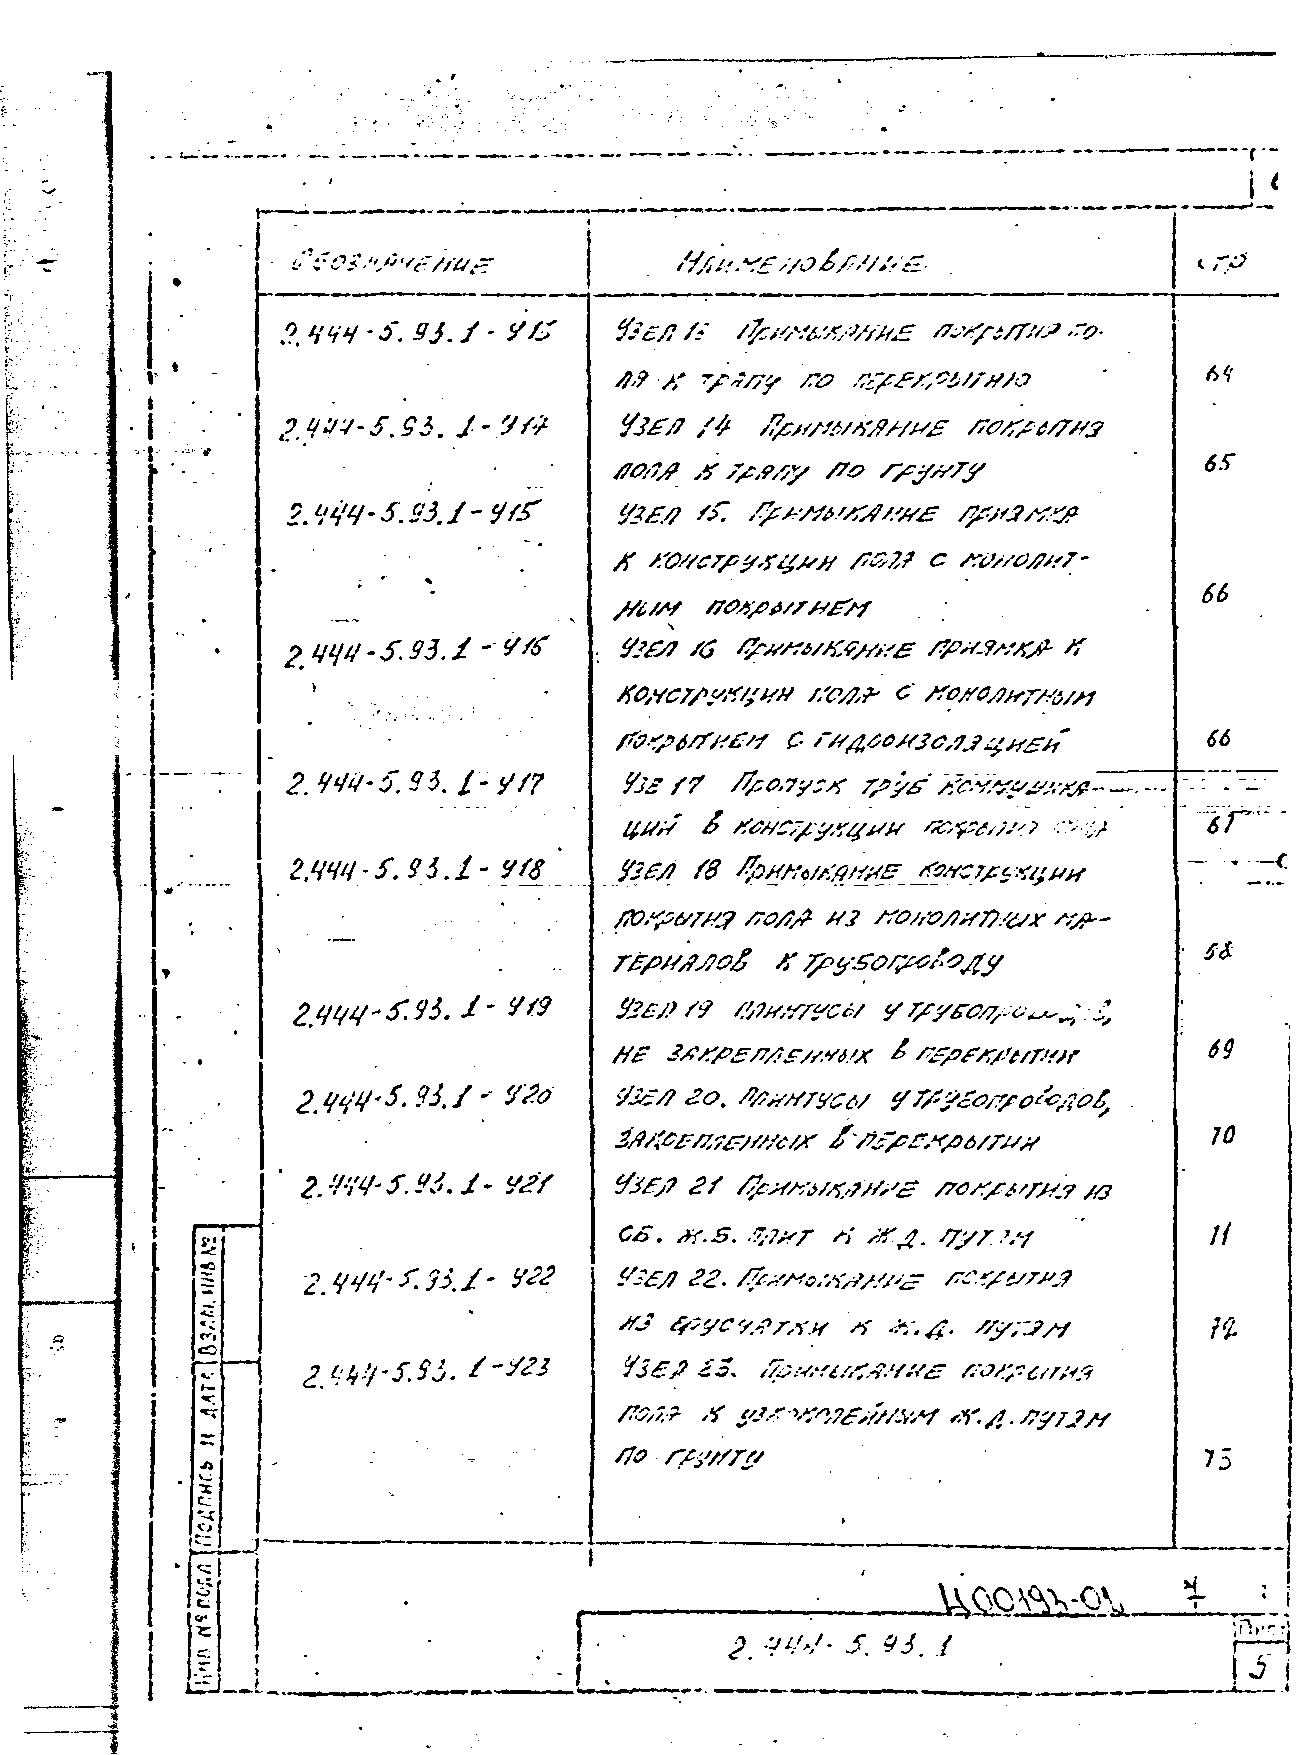 Обозначение Наименование Стр
2.444-5.93.1-У13 Узел 13 Примыкание покрытия по-
ля к трапу по перекрытию 64
2.444-5.93.1-У14 Узел 14 Примыкание покрытия
пола к трапу по грунту 65
2.444-5.93.1-У15 Узел 15. Примыкание приямка
к конструкции пола с монолит-
ным покрытием 66
2.444-5.93.1-У16 Узел 16 Примыкание приямка к
конструкции пола с монолитным
покрытием с гидроизоляцией 66
2.444-5.93.1-У17 Узе 17 Пропуск труб коммуника-
ций в конструкции покрытия пола 67
2.444-5.93.1-У18 Узел 18 Примыкание конструкции
покрытия пола из монолитных ма-
териалов к трубопроводу 68
2.444-5.93.1-У19 Узел 19 Плинтусы у трубопроводов,
не закрепленных в перекрытии 69
2.444-5.93.1-У20 Узел 20. Плинтусы у трубопроводов,
закрепленных в перекрытии 70
2.444-5.93.1-У21 Узел 21 Примыкание покрытия из
сб. ж.б. плит к ж.д. путям 71
2.444-5.93.1-У22 Узел 22. Примыкание покрытия
из брусчатки к ж.д. путям 72
2.444-5.93.1-У23 Узел 23. Примыкание покрытия
пола к узкоколейным ж.д. путям
по грунту 73
Ц00193-02 7
2.444-5.93.1
Лист
5
Инв № подл
Подпись и дата
Взам. инв №